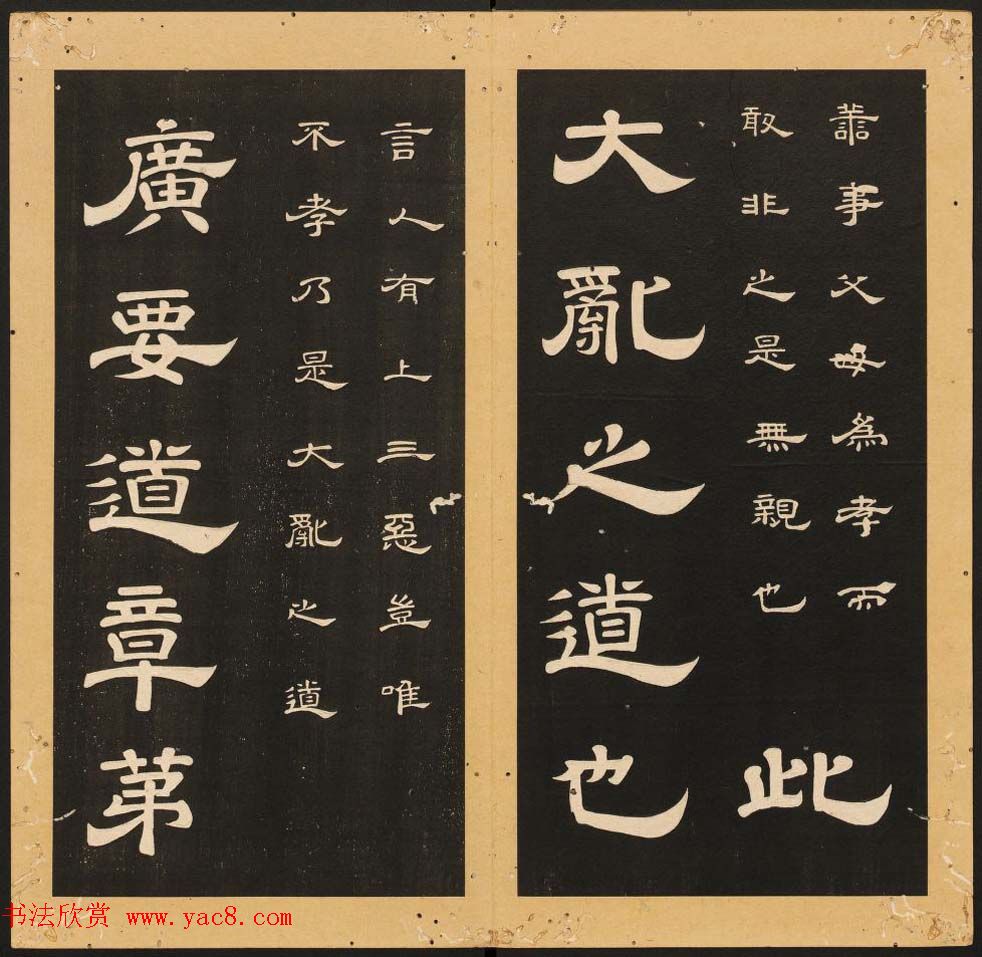 譱事父母為孝而
敢非之是無親也
此
大亂之道也
言人有上三惡豈唯
不孝乃是大亂之道
廣要道章第
书法欣赏 www.yac8.com